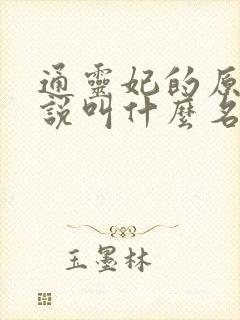 通靈妃的原
說叫什麼名
玉墨林